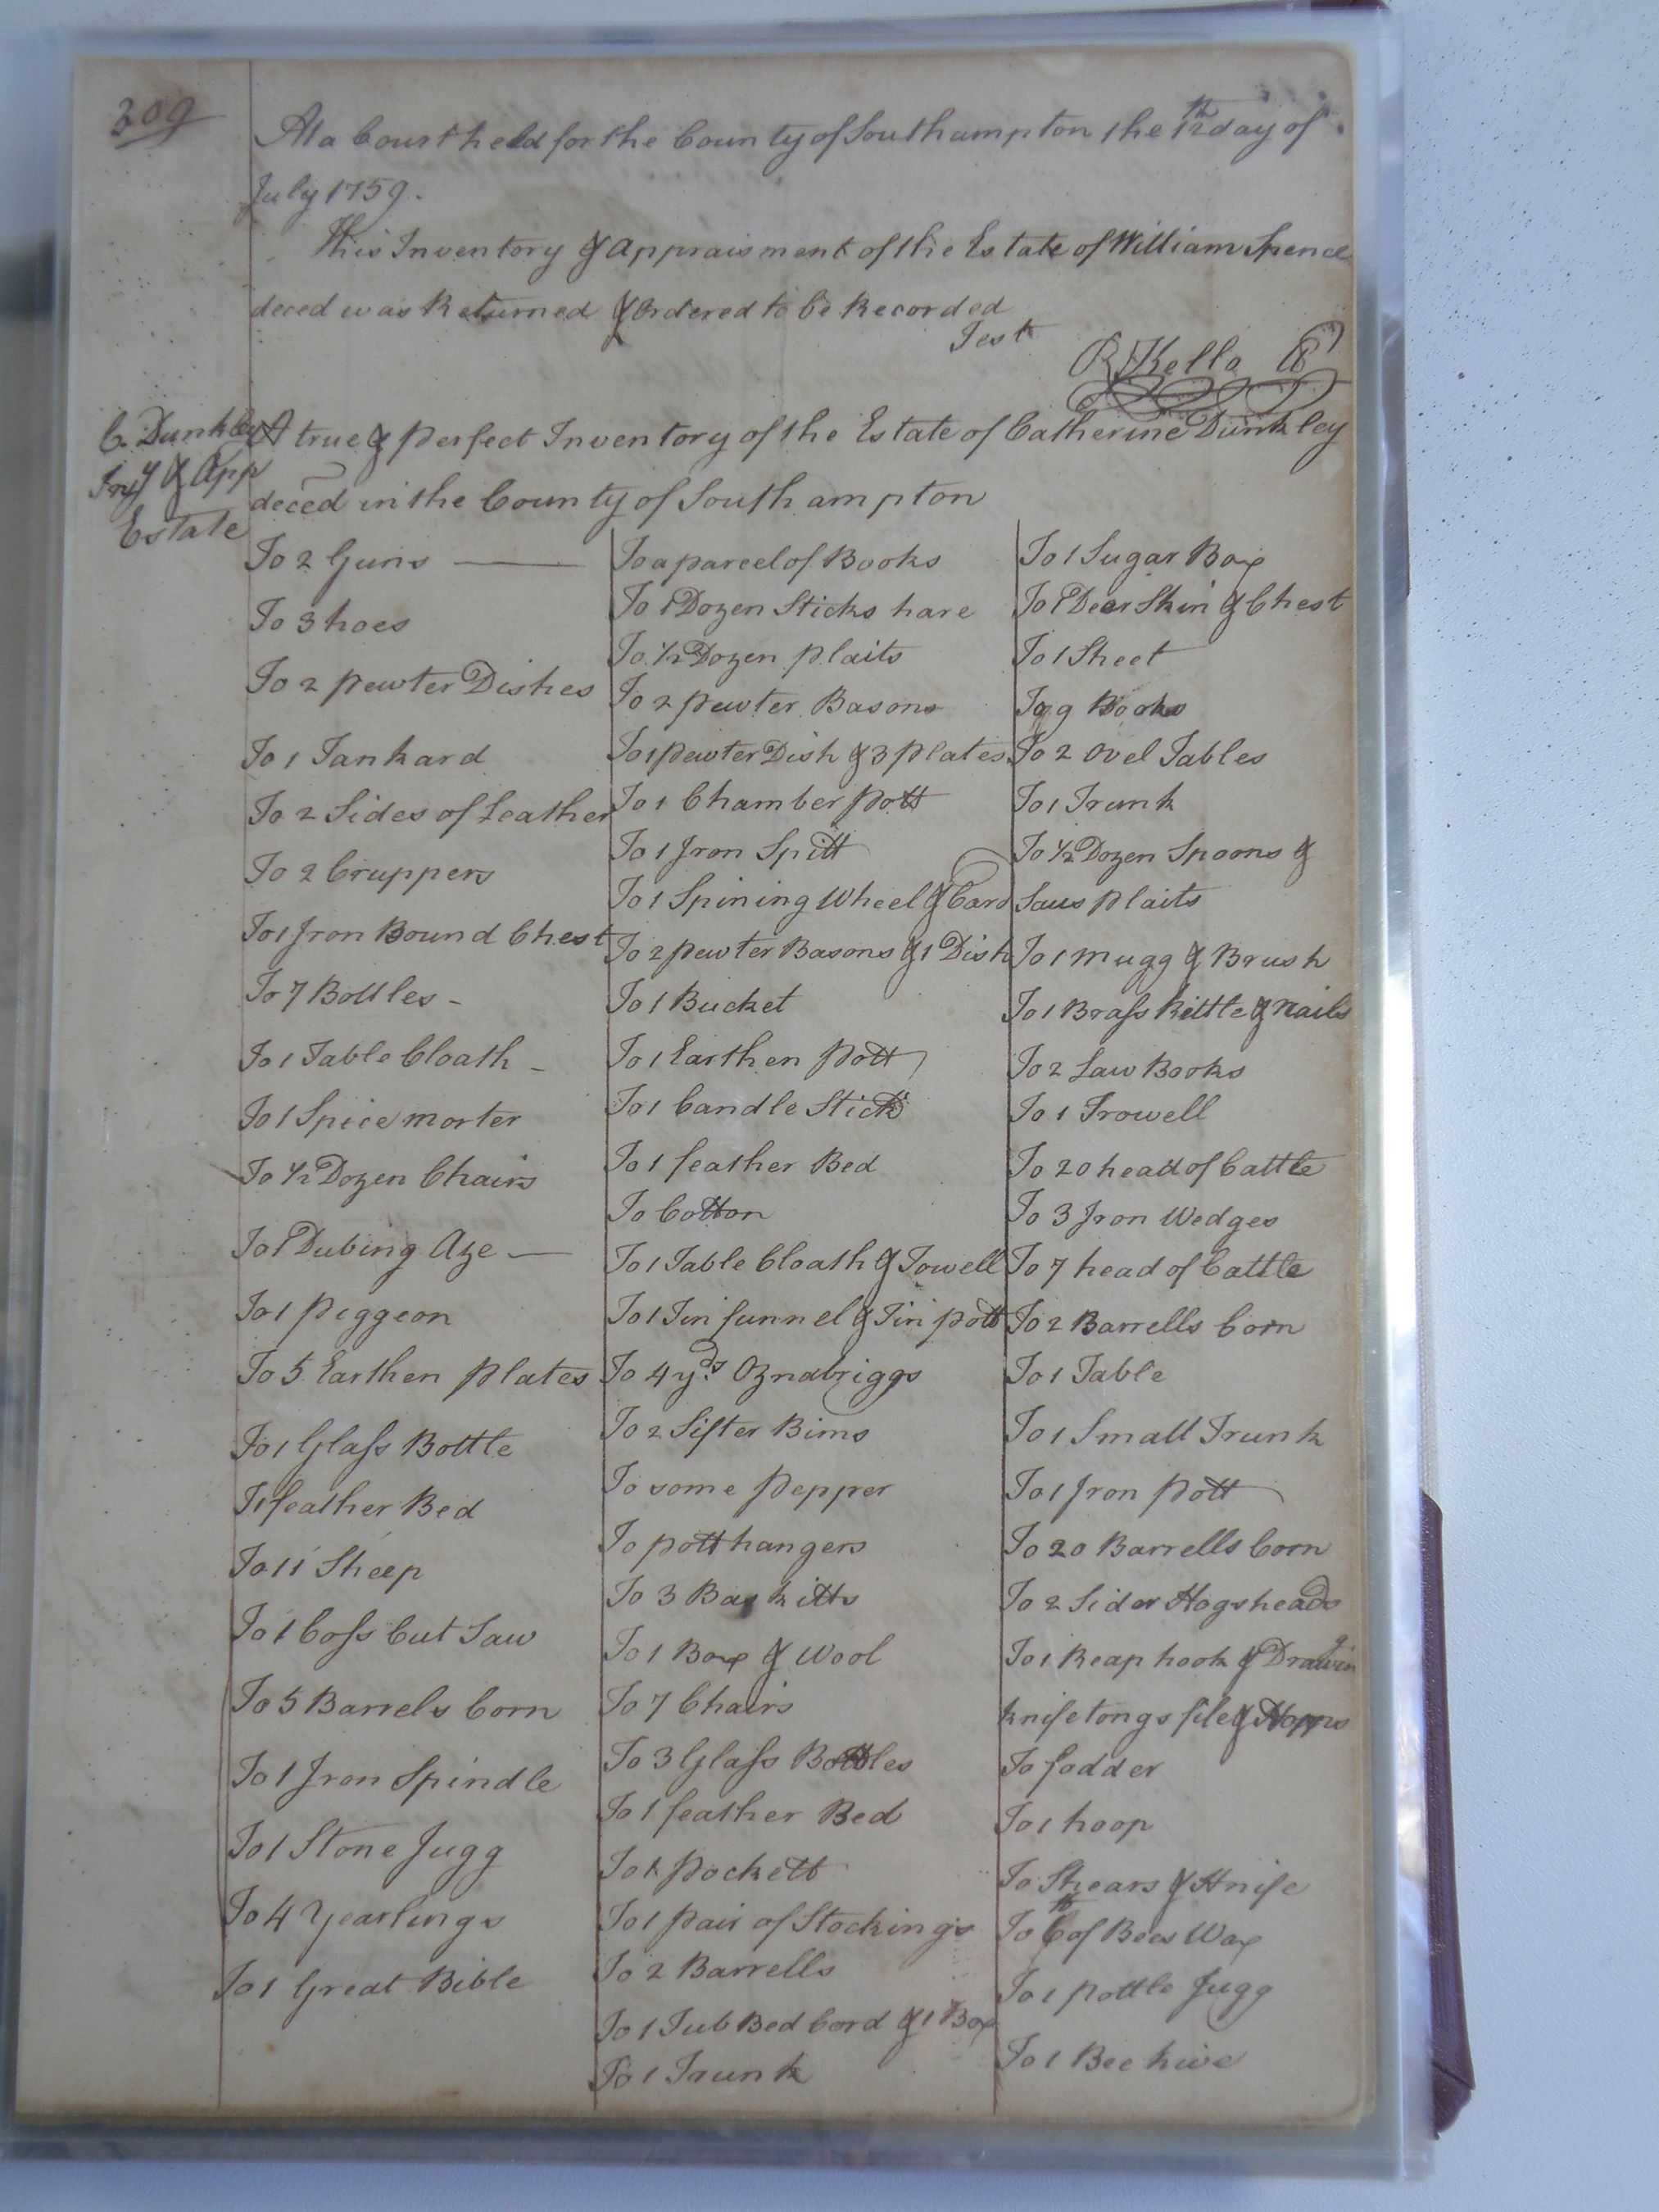 309
At a Court held for the County of Southampton the 12th day of
July 1759.
This Inventory & Appraisment of the Estate of William Spence
deced was Returned & Ordered to be Recorded
Test
R Kello
C. Dunkley
Iny & App
Estate
A true & perfect Inventory of the Estate of Catherine Dunkley
deced in the County of Southampton
To 2 Guns
To 3 hoes
To 2 pewter Dishes
To 1 Tankard
To 2 Sides of Leather
To 2 Cruppers
To 1 Iron Bound Chest
To 7 Bottles
To 1 Table Cloath
To 1 Spice morter
To 1/2 Dozen Chairs
To 1 Dubing Aze
To 1 Piggeon
To 5 Earthen plates
To 1 Glass Bottle
To 1 feather Bed
To 11 Sheep
To 1 Coss Cut Saw
To 5 Barrels Corn
To 1 Iron Spindle
To 1 Stone Jugg
To 4 Yearlings
To 1 Great Bible
To a parcel of Books
To 1 Dozen Sticks hare
To 1/2 Dozen plaits
To 2 pewter Basons
To 1 pewter Dish & 3 plates
To 1 Chamber pott
To 1 Iron Spitt
To 1 Spining Wheel & Card
To 2 pewter Basons & 1 Dish
To 1 Bucket
To 1 Earthen pott
To 1 Candle Stick
To 1 feather Bed
To Cotton
To 1 Table Cloath & Towell
To 1 Tin funnel & Tin pott
To 4 yds. Oznabriggs
To 2 Sifter Bims
To some pepper
To pott hangers
To 3 Baskitts
To 1 Box & Wool
To 7 Chairs
To 3 Glass Bottles
To 1 feather Bed
To 1 Pockett
To 1 pair of Stockings
To 2 Barrells
To 1 Tub Bed Cord & 1 Box
To 1 Trunk
To 1 Sugar Box
To 1 Deer Skin & Chest
To 1 Sheet
To 9 Books
To 2 Ovel Tables
To 1 Trunk
To 1/2 Dozen Spoons &
Saus plaits
To 1 mugg & Brush
To 1 Brass kittle & nails
To 2 Law Books
To 1 Trowell
To 20 head of Cattle
To 3 Iron Wedges
To 7 head of Cattle
To 2 Barrells Corn
To 1 Table
To 1 Small Trunk
To 1 Iron pott
To 20 Barrells Corn
To 2 Sider Hogsheads
To 1 Reap hook & Drawing
knife tongs file &
To fodder
To 1 hoop
To Shears & Knife
To 6 of Bees Wax
To 1 pottle Jugg
To 1 Bee hive